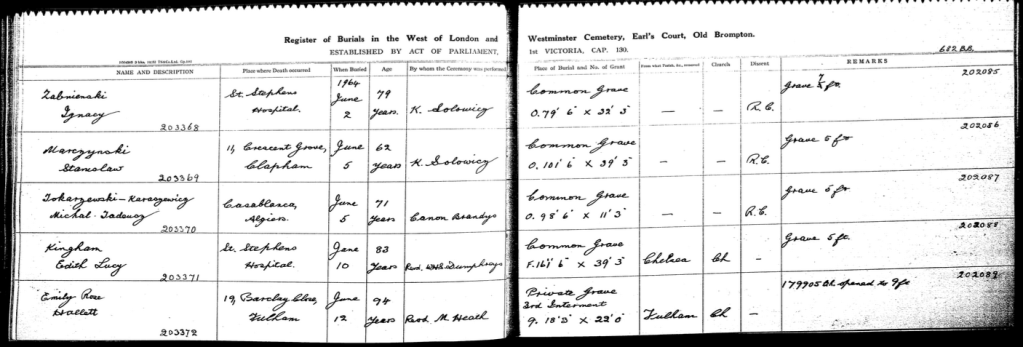 Register of Burials in the West of London and
ESTABLISHED BY ACT OF PARLIAMENT,
Westminster Cemetery, Earl's Court, Old Brompton.
1st VICTORIA, CAP. 130.
682 B.B.
NAME AND DESCRIPTION Place where Death occurred When Buried Age By whom the Ceremony was performed Place of Burial and No. of Grant Church Dissent REMARKS
1964
Zabnienski St. Stephens June 79 Common Grave Grave 7 ft. 202085
Ignacy Hospital. 2 Years K. Solowicz O. 79' 6" × 32' 3" — — R.C.
203368
Marczynski 11, Crescent Grove, June 62 Common Grave Grave 5 ft 202086
Stanislaw Clapham 5 Years K. Solowicz O. 101' 6" × 39' 3" — — R.C.
203369
Tokarzewski-Karaszewicz Casablanca, June 71 Common Grave Grave 5 ft 202087
Michal-Tadeusz Algiers. 5 Years Canon Brandys O. 98' 6" × 11' 3" — — R.C.
203370
Kingham St. Stephens June 83 Common Grave Grave 5 ft. 202088
Edith Lucy Hospital. 10 Years Revd. Humphreys F. 161' 6" × 39' 3" Chelsea Ch —
203371
Emily Rose 19, Barclay Close, June 94 Private Grave 179905 opened to 9 ft 202089
3rd Interment
Hallett Fulham 12 Years Revd. M. Heath 9. 18' 3" × 22' 0" Fulham Ch —
203372